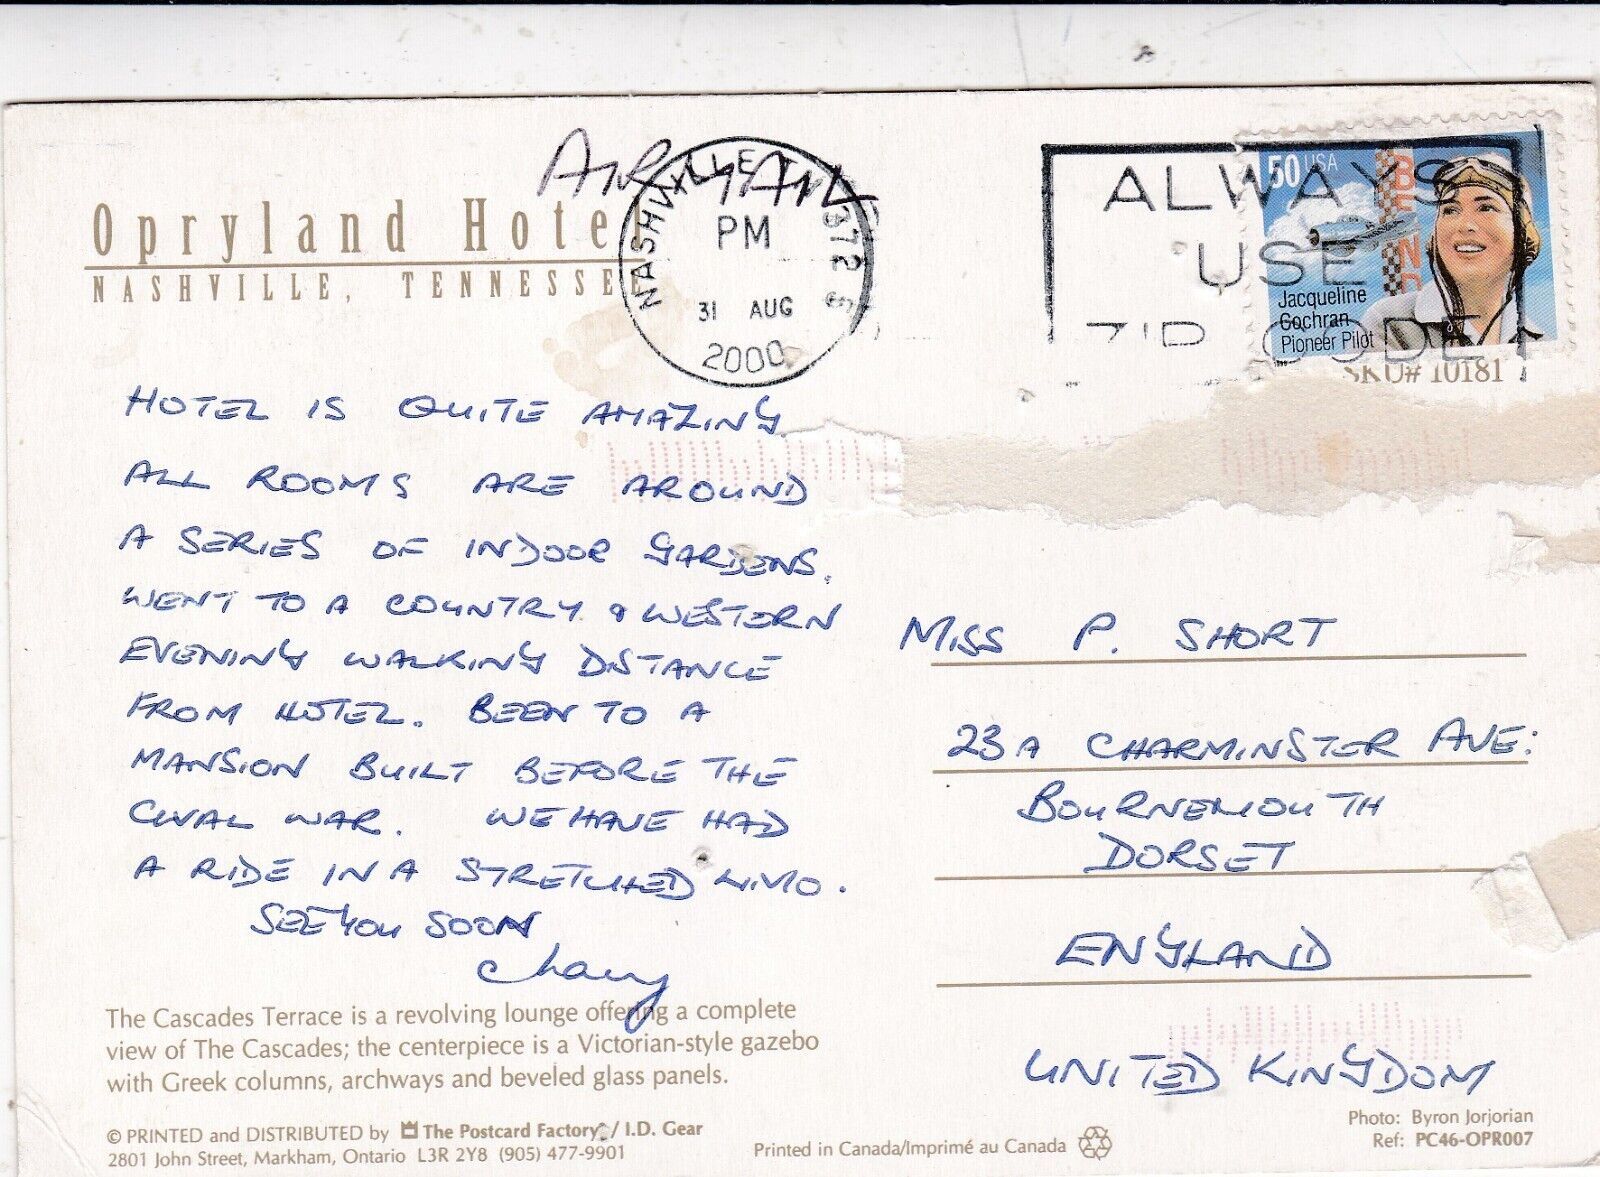 AIR MAIL
Opryland Hotel
NASHVILLE, TENNESSEE
NASHVILLE TN 372
PM
31 AUG
2000
ALWAYS
USE
ZIP CODE
50 USA
BEND
Jacqueline
Cochran
Pioneer Pilot
SKU# 10181
HOTEL IS QUITE AMAZING.
ALL ROOMS ARE AROUND
A SERIES OF INDOOR GARDENS.
WENT TO A COUNTRY & WESTERN
EVENING WALKING DISTANCE
FROM HOTEL. BEEN TO A
MANSION BUILT BEFORE THE
CIVAL WAR. WE HAVE HAD
A RIDE IN A STRETCHED LIMO.
SEE YOU SOON
MISS P. SHORT
23A CHARMINSTER AVE:
BOURNEMOUTH
DORSET
ENGLAND
UNITED KINGDOM
The Cascades Terrace is a revolving lounge offering a complete
view of The Cascades; the centerpiece is a Victorian-style gazebo
with Greek columns, archways and beveled glass panels.
© PRINTED and DISTRIBUTED by The Postcard Factory / I.D. Gear
2801 John Street, Markham, Ontario L3R 2Y8 (905) 477-9901
Printed in Canada/Imprimé au Canada
Photo: Byron Jorjorian
Ref: PC46-OPR007